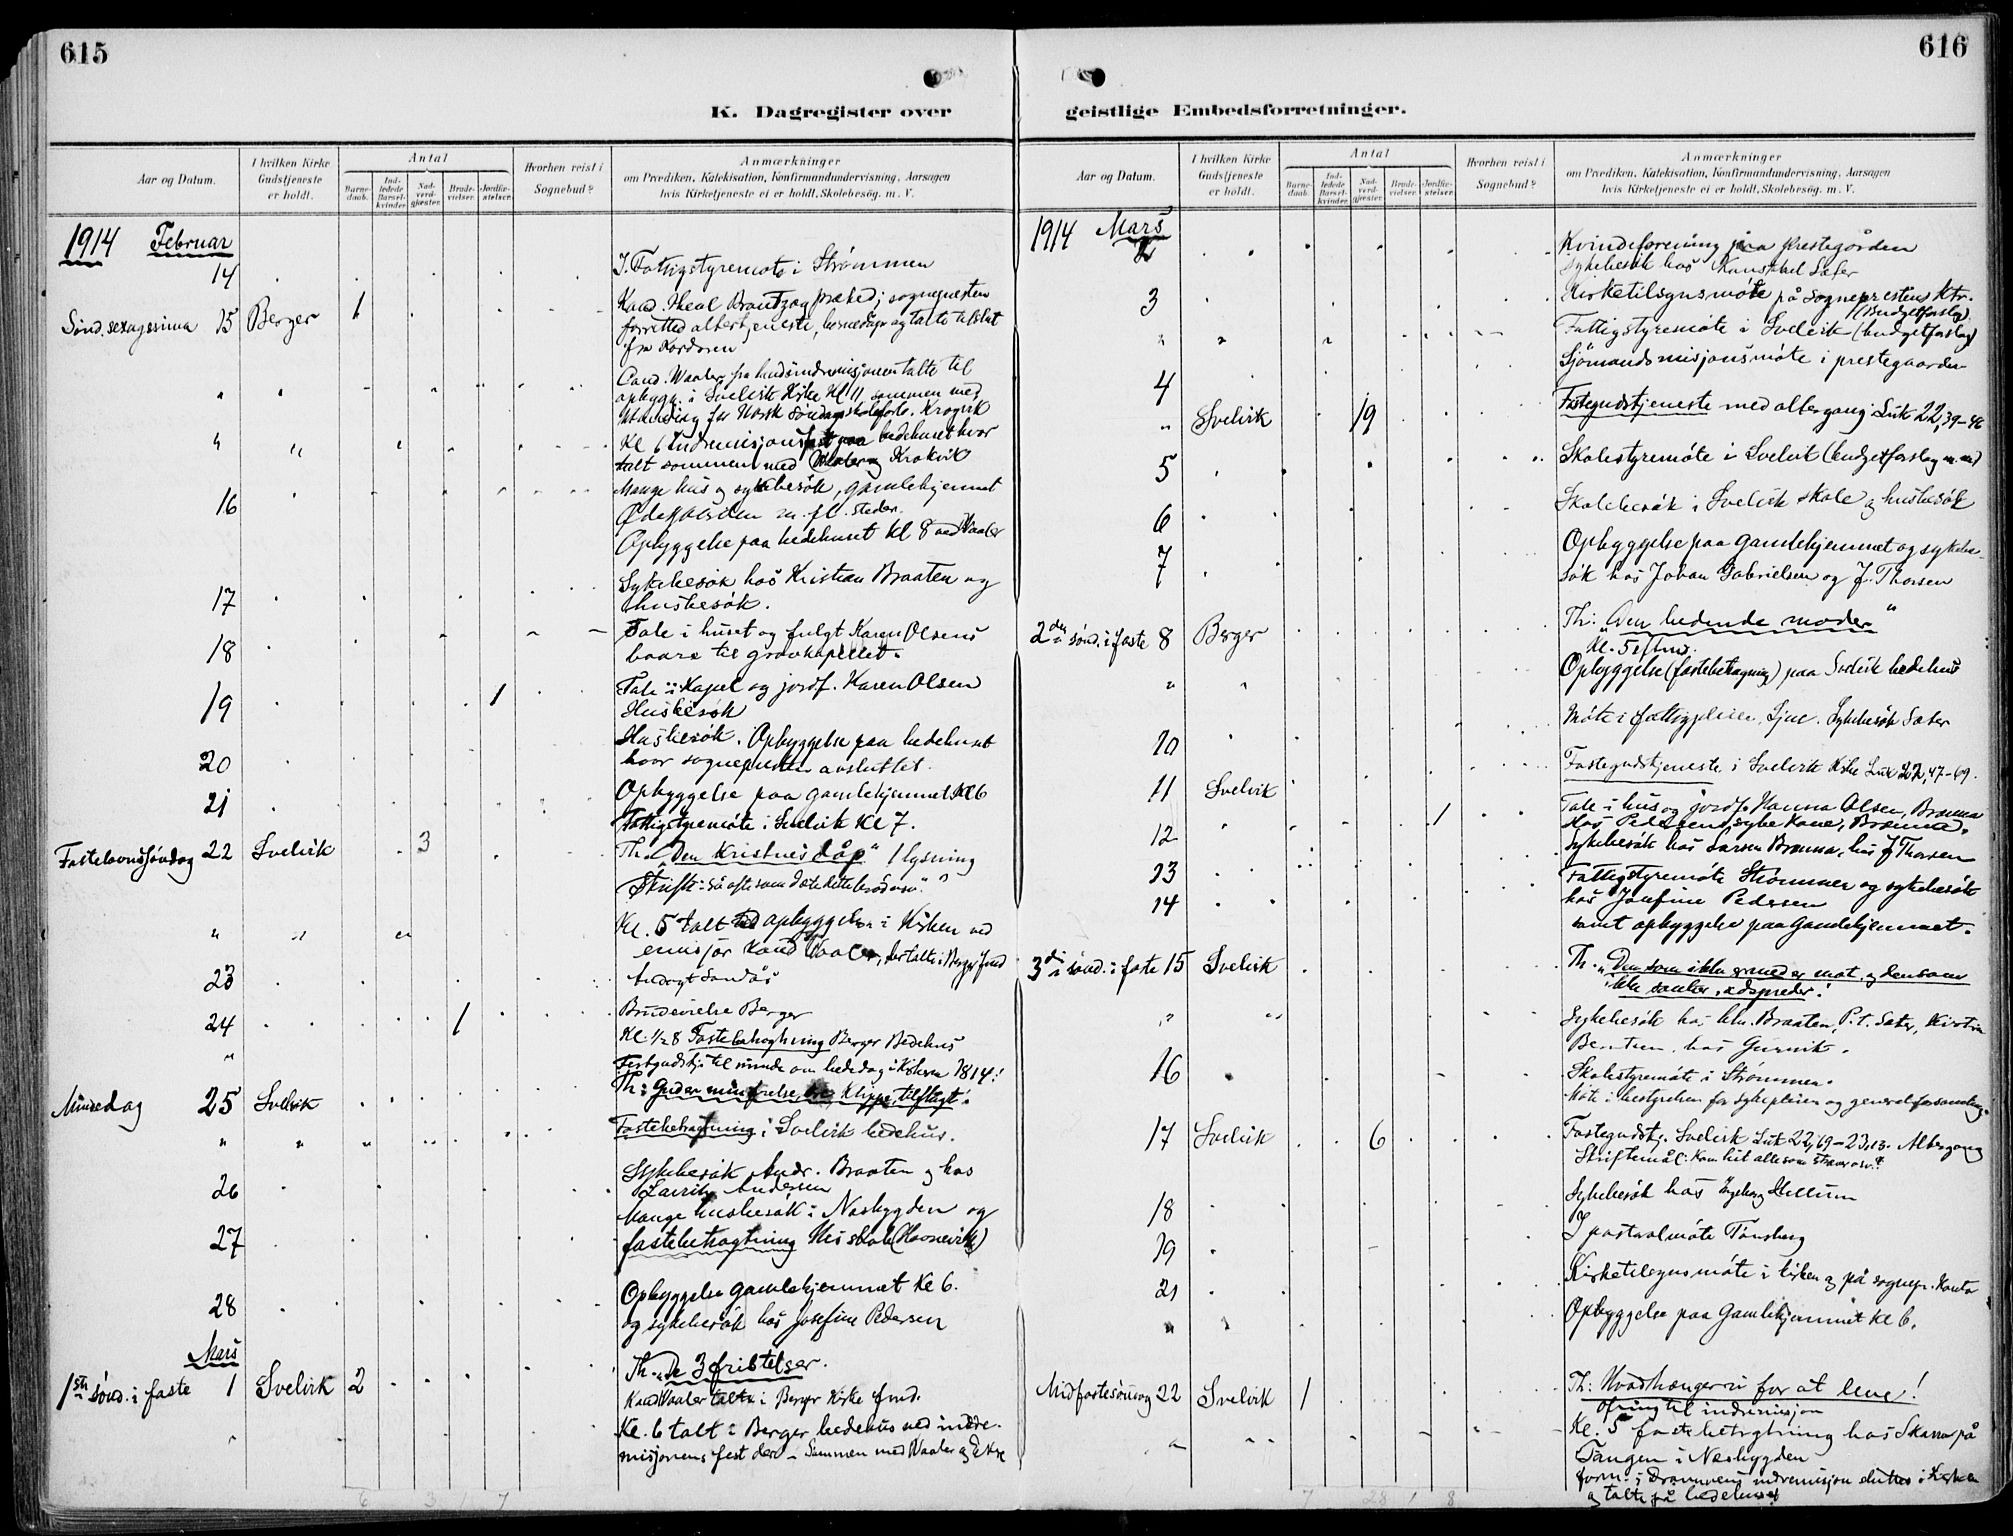 615
K. Dagregister over
Aar og Datum.
I hvilken Kirke Gudstjeneste er holdt.
Antal
Barne-daab.
Ind-ledede Barsel-kvinder
Nad-verd-gjæster.
Brude-vielser.
Jordfæ-stelser.
Hvorhen reist i Sognebud?
Anmærkninger
om Prædiken, Katekisation, Konfirmandundervisning, Aarsagen
hvis Kirketjeneste ei er holdt, Skolebesøg. m. V.
1914 Februar
14 I. Fattigstyremøte i Strømmen
Sønd. sexagesima 15 Berger 1 Kand. præked; sognepresten
forretted altertjeneste, og talte tilslut
fra Kordøren
Cand. Waaler fra talte til
opbygg. i Svelvik Kirke Kl 11 sammen med
for Norsk Søndagsskoleforb. Krogvik
Kl 6 Indremisjonsfest paa bedehuset hvor
talt sammen med Waaler og Krokvik
16 Mange hus og sykebesøk, gamlehjemmet
m. fl. steder.
Opbyggelse paa bedehuset Kl 8 ved Waaler
17 Sykebesøk hos Kristian Braaten og
husbesøk.
18 Tale i huset og fulgt Karen Olsens
baare til gravkapellet.
19 1 Tale i Kapel og jordf. Karen Olsen
Husbesøk
20 Husbesøk. Opbyggelse paa bedehuset
hvor sognepresten avsluttet.
21 Opbyggelse paa gamlehjemmet Kl 6
Fattigstyremøte i Svelvik Kl 7.
Fastelavnssøndag 22 Svelvik 3 Th. "Den Kristnes dåp" 1 lysning
Skrifte: så ofte som
Kl. 5 talt ved opbyggelse i Kirken ved
emisjær Kand Waaler, der talte i Berger fmd
23
24 1 Brudevielse Berger
Kl. 1/2 8 Fastebetragtning Berger Bedehus
Mindedag 25 Svelvik Festgudstj. til minde om bededag i Kirken 1814!
Th: Gud er min frelse, Klippe, tilflugt.
Fastebetragtning i Svelvik bedehus.
26 Sykebesøk Andr. Braaten og hos
Lauritz Andersen
27 Mange husbesøk i Nesbygden og
fastebetragtning skole
28 Opbyggelse gamlehjemmet Kl 6.
og sykebesøk hos Josefine Pedersen
Mars
1ste sønd. i faste 1 Svelvik 2 Th. "De 3 fristelser.
Kand Waaler talte i Berger Kirke fmd.
Kl. 6 talt i Berger bedehus ved indre-
misjonens fest der - Sammen med Waaler og
6 3 7
616
geistlige Embedsforretninger.
Aar og Datum.
I hvilken Kirke Gudstjeneste er holdt.
Antal
Barne-daab.
Ind-ledede Barsel-kvinder
Nad-verd-gjæster.
Brude-vielser.
Jordfæ-stelser.
Hvorhen reist i Sognebud?
Anmærkninger
om Prædiken, Katekisation, Konfirmandundervisning, Aarsagen
hvis Kirketjeneste ei er holdt, Skolebesøg. m. V.
1914 Mars
2 Kvindeforening paa prestegården
sykebesøk hos Sæter
3 Kirketilsynsmøte på Sogneprestens Ktr.
(Budgetforslag).
Fattigstyremøte i Svelvik (budgetforslag)
4 Sjømandsmisjonsmøte i prestegaarden
Svelvik 19 Fastegudstjeneste med altergang Luk 22,39-46
5 Skolestyremøte i Svelvik (budgetforslag m. m)
6 Skolebesøk i Svelvik skole og husbesøk
7 Opbyggelse paa gamlehjemmet og sykebe-
søk hos Johan Gabrielsen og J. Thorsen
2den sønd. i faste 8 Berger Th: "Den bedende moder"
Kl. 5 eftm.
Opbyggelse (fastebetragtning) paa Svelvik bedehus
10 Møte i fattigpleien, Sykebesøk Sæter
11 Svelvik Fastegudstjeneste i Svelvik Kirke Luk 22,47-69.
12 1 Tale i hus og jordf. Hanna Olsen, Brenna
Hos Pedersens syke Kone, Brenna.
13 Sykebesøk hos Larsen Brenna, hos J Thorsen
14 Fattigstyremøte Strømmen og sykebesøk
hos Josefine Pedersen
samt opbyggelse paa Gamlehjemmet.
3die sønd. i faste 15 Svelvik Th. "Den som ikke er med er mot, og den som
ikke sanker, adspreder!
Sykebesøk hos Braaten, P. t. Sæter, Kirstin
Berntsen, hos Gurvik.
16 Skolestyremøte i Strømmen.
Møte i bestyrelsen for sykepleien og generalforsamling.
17 Svelvik 6 Fastegudstj. Svelvik Luk 22,69-23,13. Altergang
Skriftemål: Kom hit alle som
18 Sykebesøk hos Ingeborg Hellum
19 I pastoralmøte Tønsberg
21 Kirketilsynsmøte i kirken og på sognepr. Kontor
Opbyggelse paa Gamlehjemmet Kl 6.
Midfastesøndag 22 Svelvik 1 Th: Hvad trænger vi for at leve!
Ofring til indremisjon
Kl. 5 fastebetragtning hos på
Tangen i Nesbygden
form. i Drammens indremisjon i Kirken
og talte på bedehuset
7 28 1 8